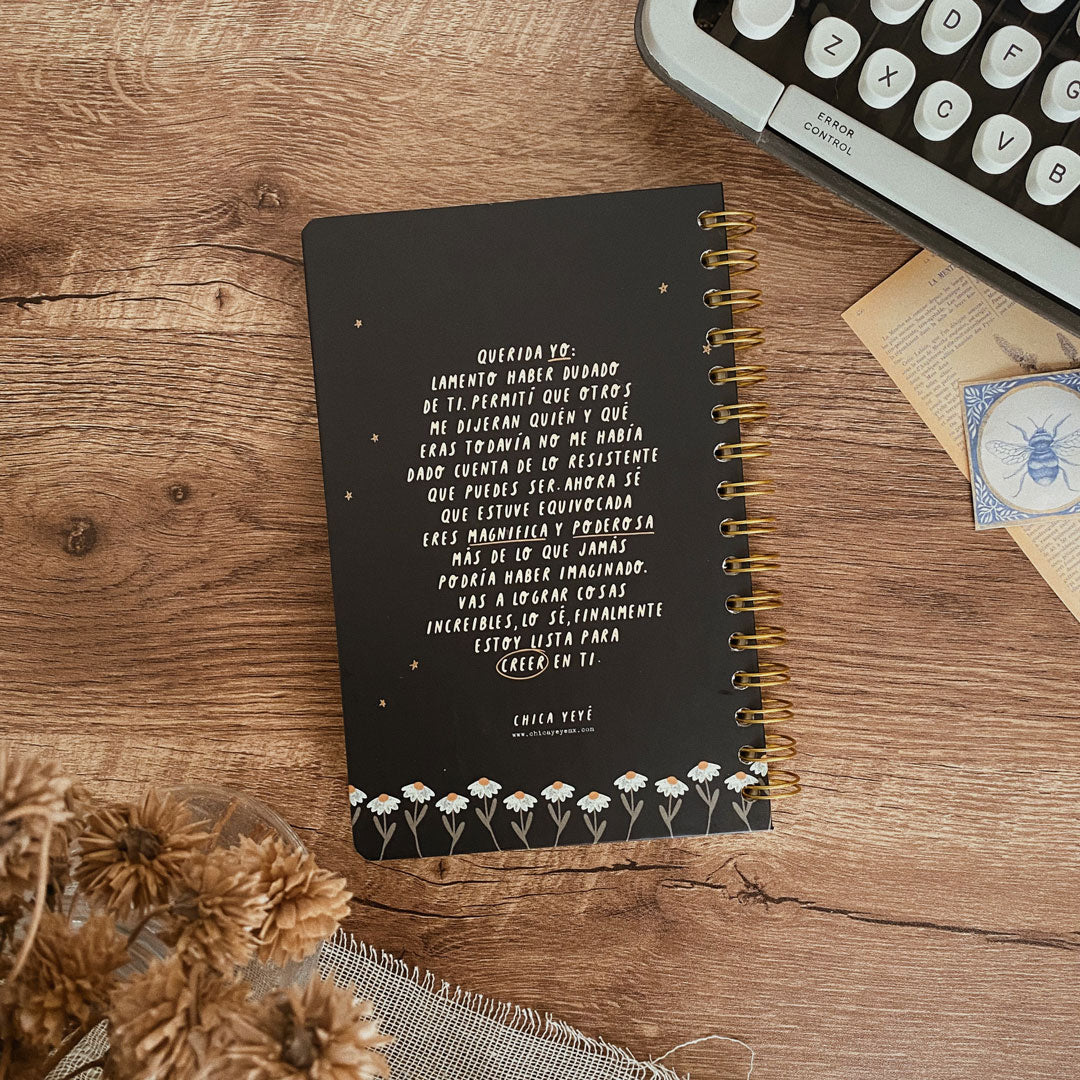 Z X C V B D F G
ERROR
CONTROL
LA MENTE
QUERIDA YO:
LAMENTO HABER DUDADO
DE TI. PERMITÍ QUE OTROS
ME DIJERAN QUIÉN Y QUÉ
ERAS TODAVÍA NO ME HABÍA
DADO CUENTA DE LO RESISTENTE
QUE PUEDES SER. AHORA SÉ
QUE ESTUVE EQUIVOCADA
ERES MAGNIFICA Y PODEROSA
MÁS DE LO QUE JAMÁS
PODRÍA HABER IMAGINADO.
VAS A LOGRAR COSAS
INCREIBLES, LO SÉ, FINALMENTE
ESTOY LISTA PARA
CREER EN TI.
CHICA YEYÉ
www.chicayeyemx.com